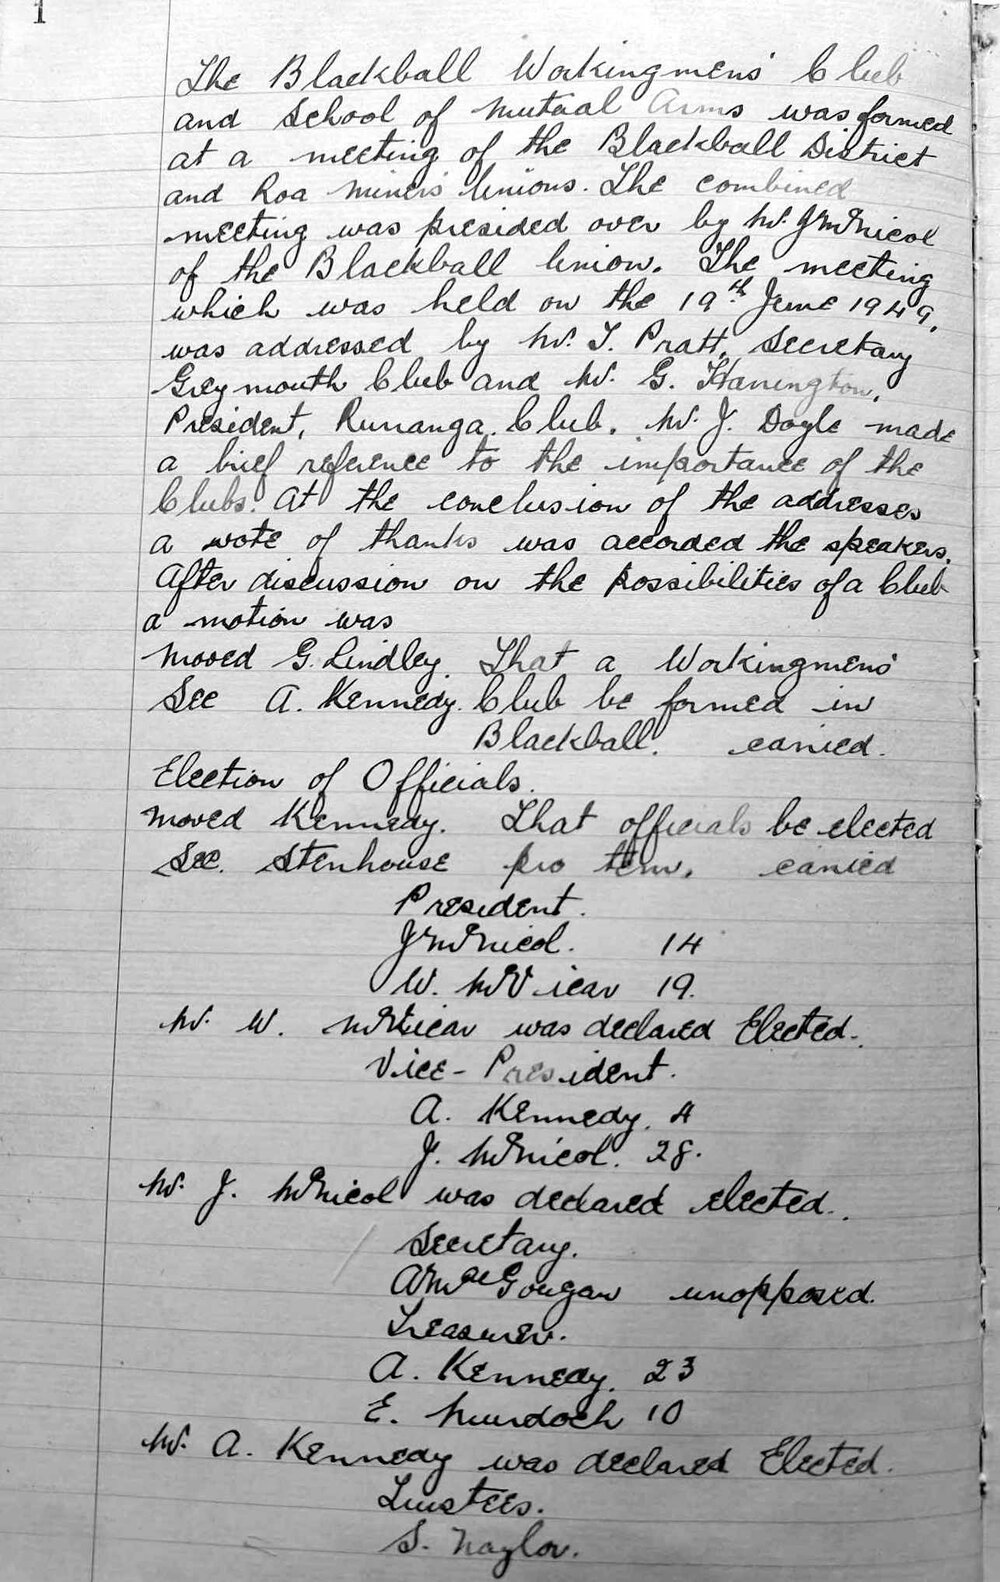 1
The Blackball Workingmens' Club
and School of Mutual Arms was formed
at a meeting of the Blackball District
and Roa Miners Unions. The combined
meeting was presided over by Mr. J McNicol
of the Blackball Union. The meeting
which was held on the 19th June 1949,
was addressed by Mr. T. Pratt, Secretary
Greymouth Club and Mr. G. Harrington,
President, Runanga Club. Mr. J. Doyle made
a brief reference to the importance of the
Clubs. At the conclusion of the addresses
a vote of thanks was accorded the speakers.
After discussion on the possibilities of a Club
a motion was
Moved G. Lindley. That a Workingmens'
Sec A. Kennedy. Club be formed in
Blackball. carried.
Election of Officials.
Moved Kennedy. That officials be elected
Sec. Stenhouse pro tem. carried
President.
J McNicol. 14
W. McVicar 19.
Mr. W. McVicar was declared Elected.
Vice-President.
A. Kennedy. 4
J. McNicol. 28.
Mr. J. McNicol was declared elected.
Secretary.
A McGougan unopposed.
Treasurer.
A. Kennedy. 23
E. Murdoch 10
Mr. A. Kennedy was declared Elected.
Trustees.
S. Naylor.